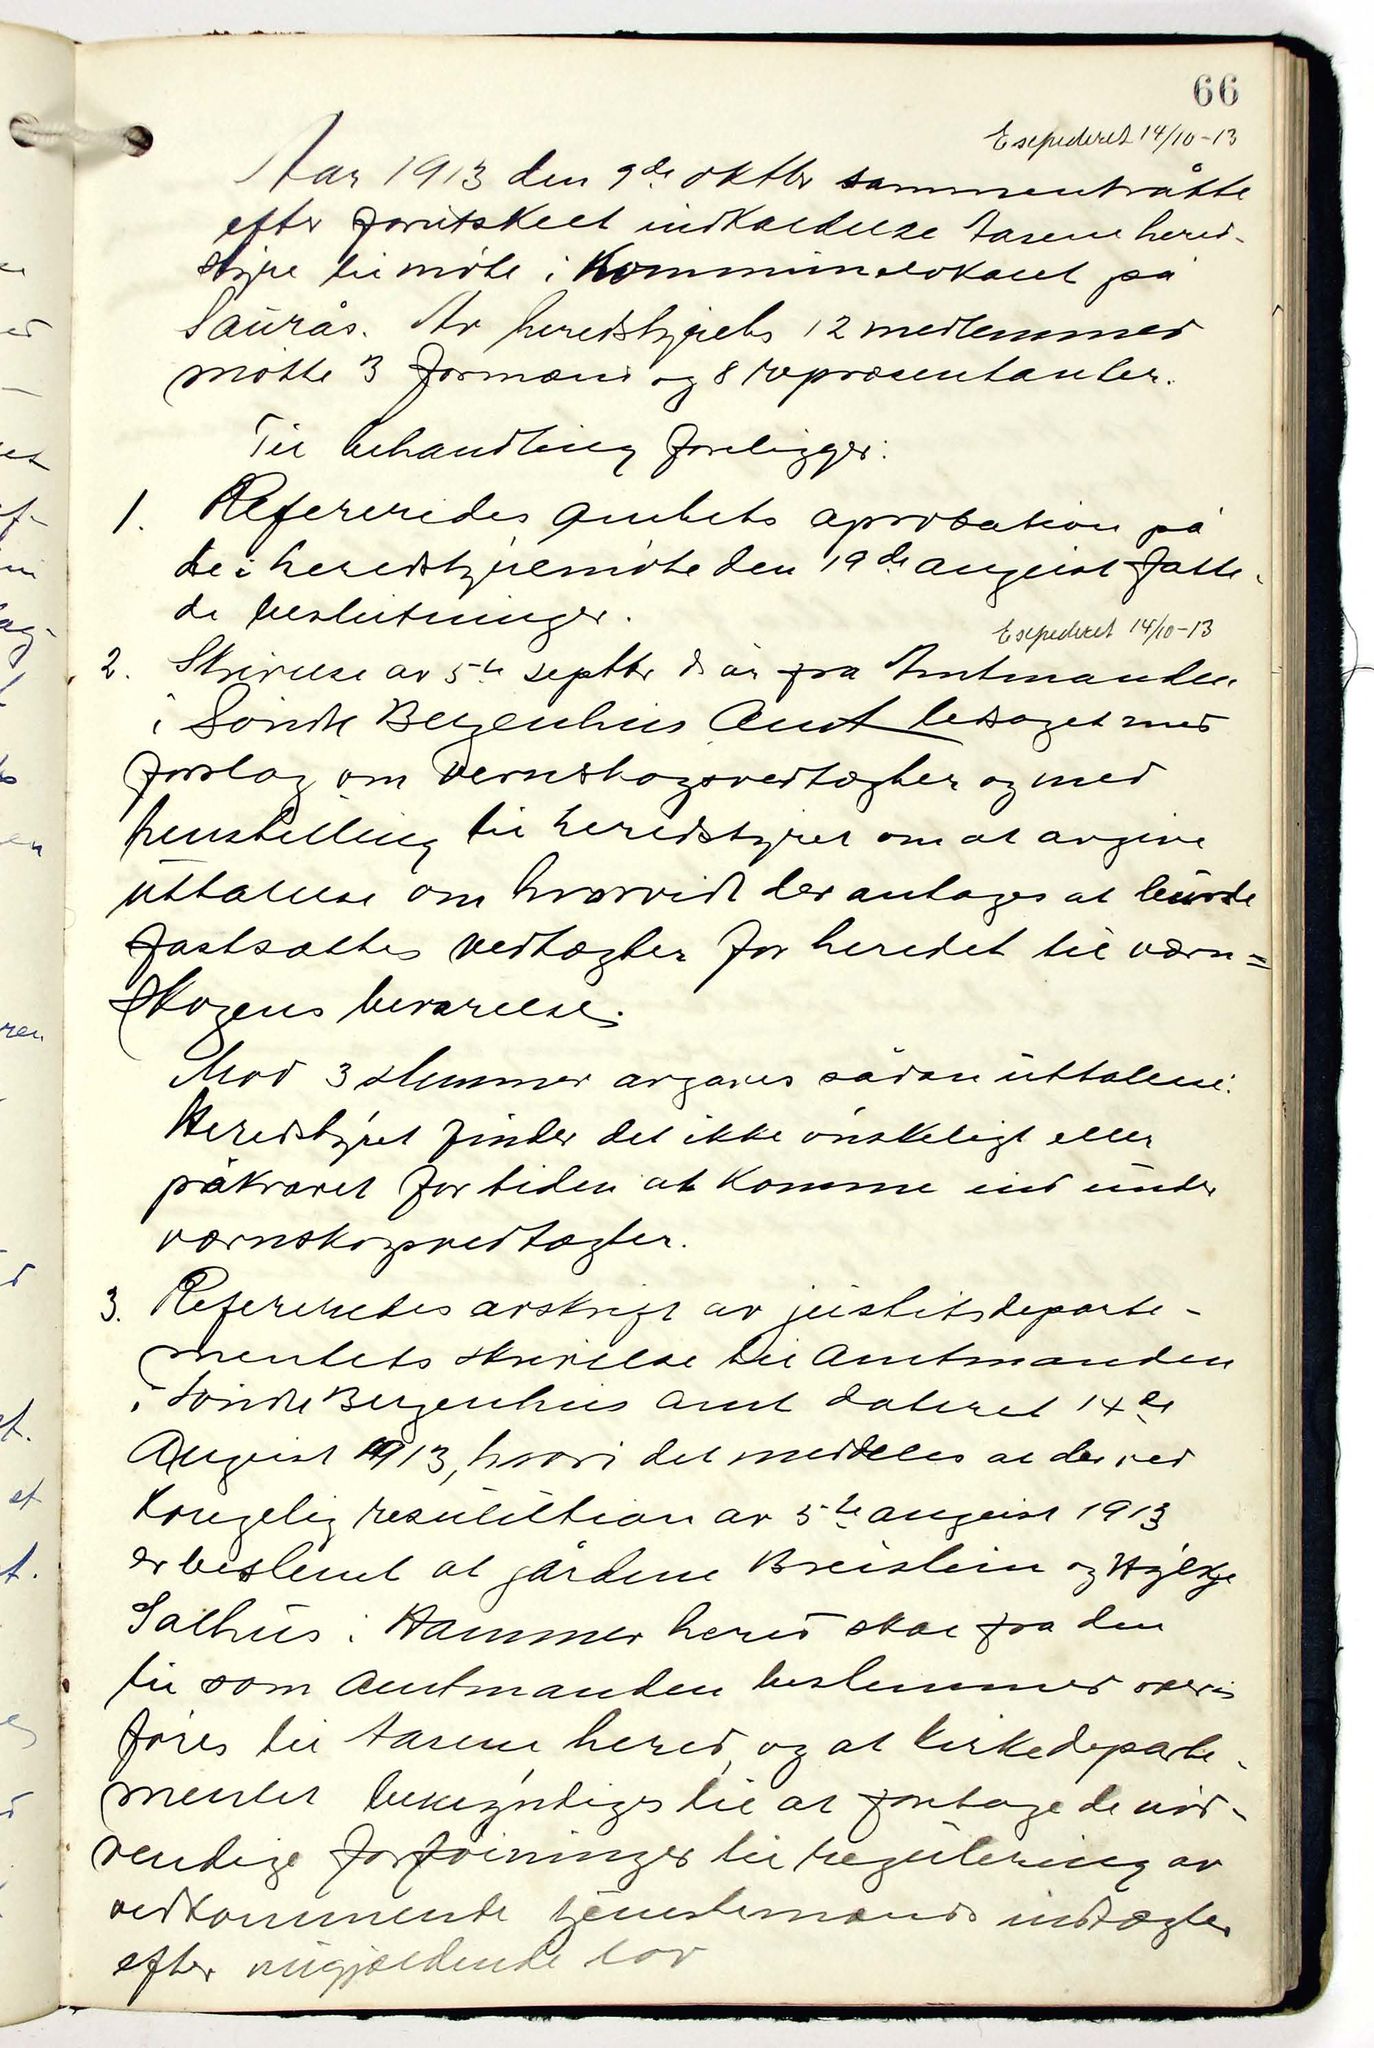 66
Expederet 14/10-13
Aar 1913 den 9de oktbr sammentråtte
efter forutskeet indkaldelse Aasene hered-
styre til møte i Kommunelokalet på
Saurås. Av heredstyrets 12 medlemmer
møtte 3 formænd og 8 repræsentanter.
Til behandling foreligger:
1. Refereredes Amtets aprobation på
de i heredstyremøte den 19de august fatte-
de beslutninger.
Expederet 14/10-13
2. Skrivelse av 5te septbr d. år fra Amtmanden
i Søndre Bergenhus Amt ledsaget med
forslag om vernskogsvedtægter og med
henstilling til heredstyret om at avgive
uttalelse om hvorvidt der antages at burde
fastsættes vedtægter for heredet til værn=
skogens bevarelse.
Mod 3 stemmer avgaves sådan uttalelse:
Heredstyret finder det ikke ønskeligt eller
påkrævet for tiden at komme ind under
værnskogsvedtægter.
3. Refereredes avskrift av justitsdeparte-
mentets skrivelse til Amtmanden
i Søndre Bergenhus Amt dateret 14de
August 1913, hvori det meddeles at der ved
Kongelig resulution av 5te august 1913
er bestemt at gårdene Breistein og Hylkje
Salhus i Hammer hered skal fra den
tid som Amtmanden bestemmer over-
føres til Aasene hered, og at kirkedeparte-
mentet bemyndiges til at foretage de nød-
vendige forføininger til regulering av
vedkommende tjenestemænds indtægter
efter nugjældende lov